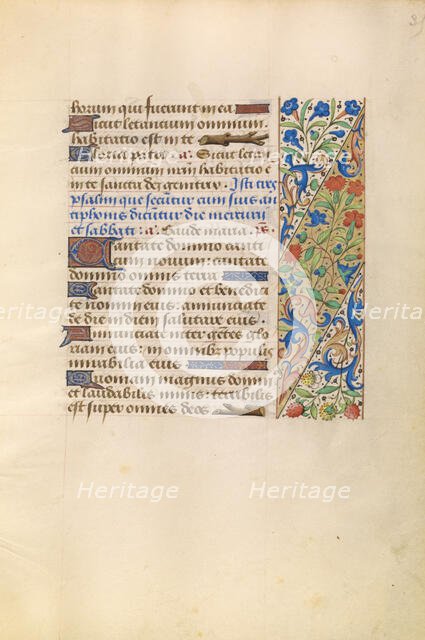 horum qui fuerunt in ea
Sicut letancium omnium
habitatio est in te
Gloria patri a. Sicut leta
cium omnium nr̄m habitatio ē
in te sancta dei genitrix. Isti tres
psalmi que secūtur cum suis an
tiphonis dicūtur die mercurii
et sabbati: a. Gaude maria. ps.
Cantate domino canti
cum novum: cantate
domino omnis terra
Cantate domino et benedici
te nomini eius: annunciate
de die in diem salutare eius.
Annunciate inter gentes glo
riam eius: in omnibz populis
mirabilia eius
Quoniam magnus domin
et laudabilis nimis: terribilis
est super omnes deos
Heritage
Heritage
Heritage
Heritage
Heritage
Heritage